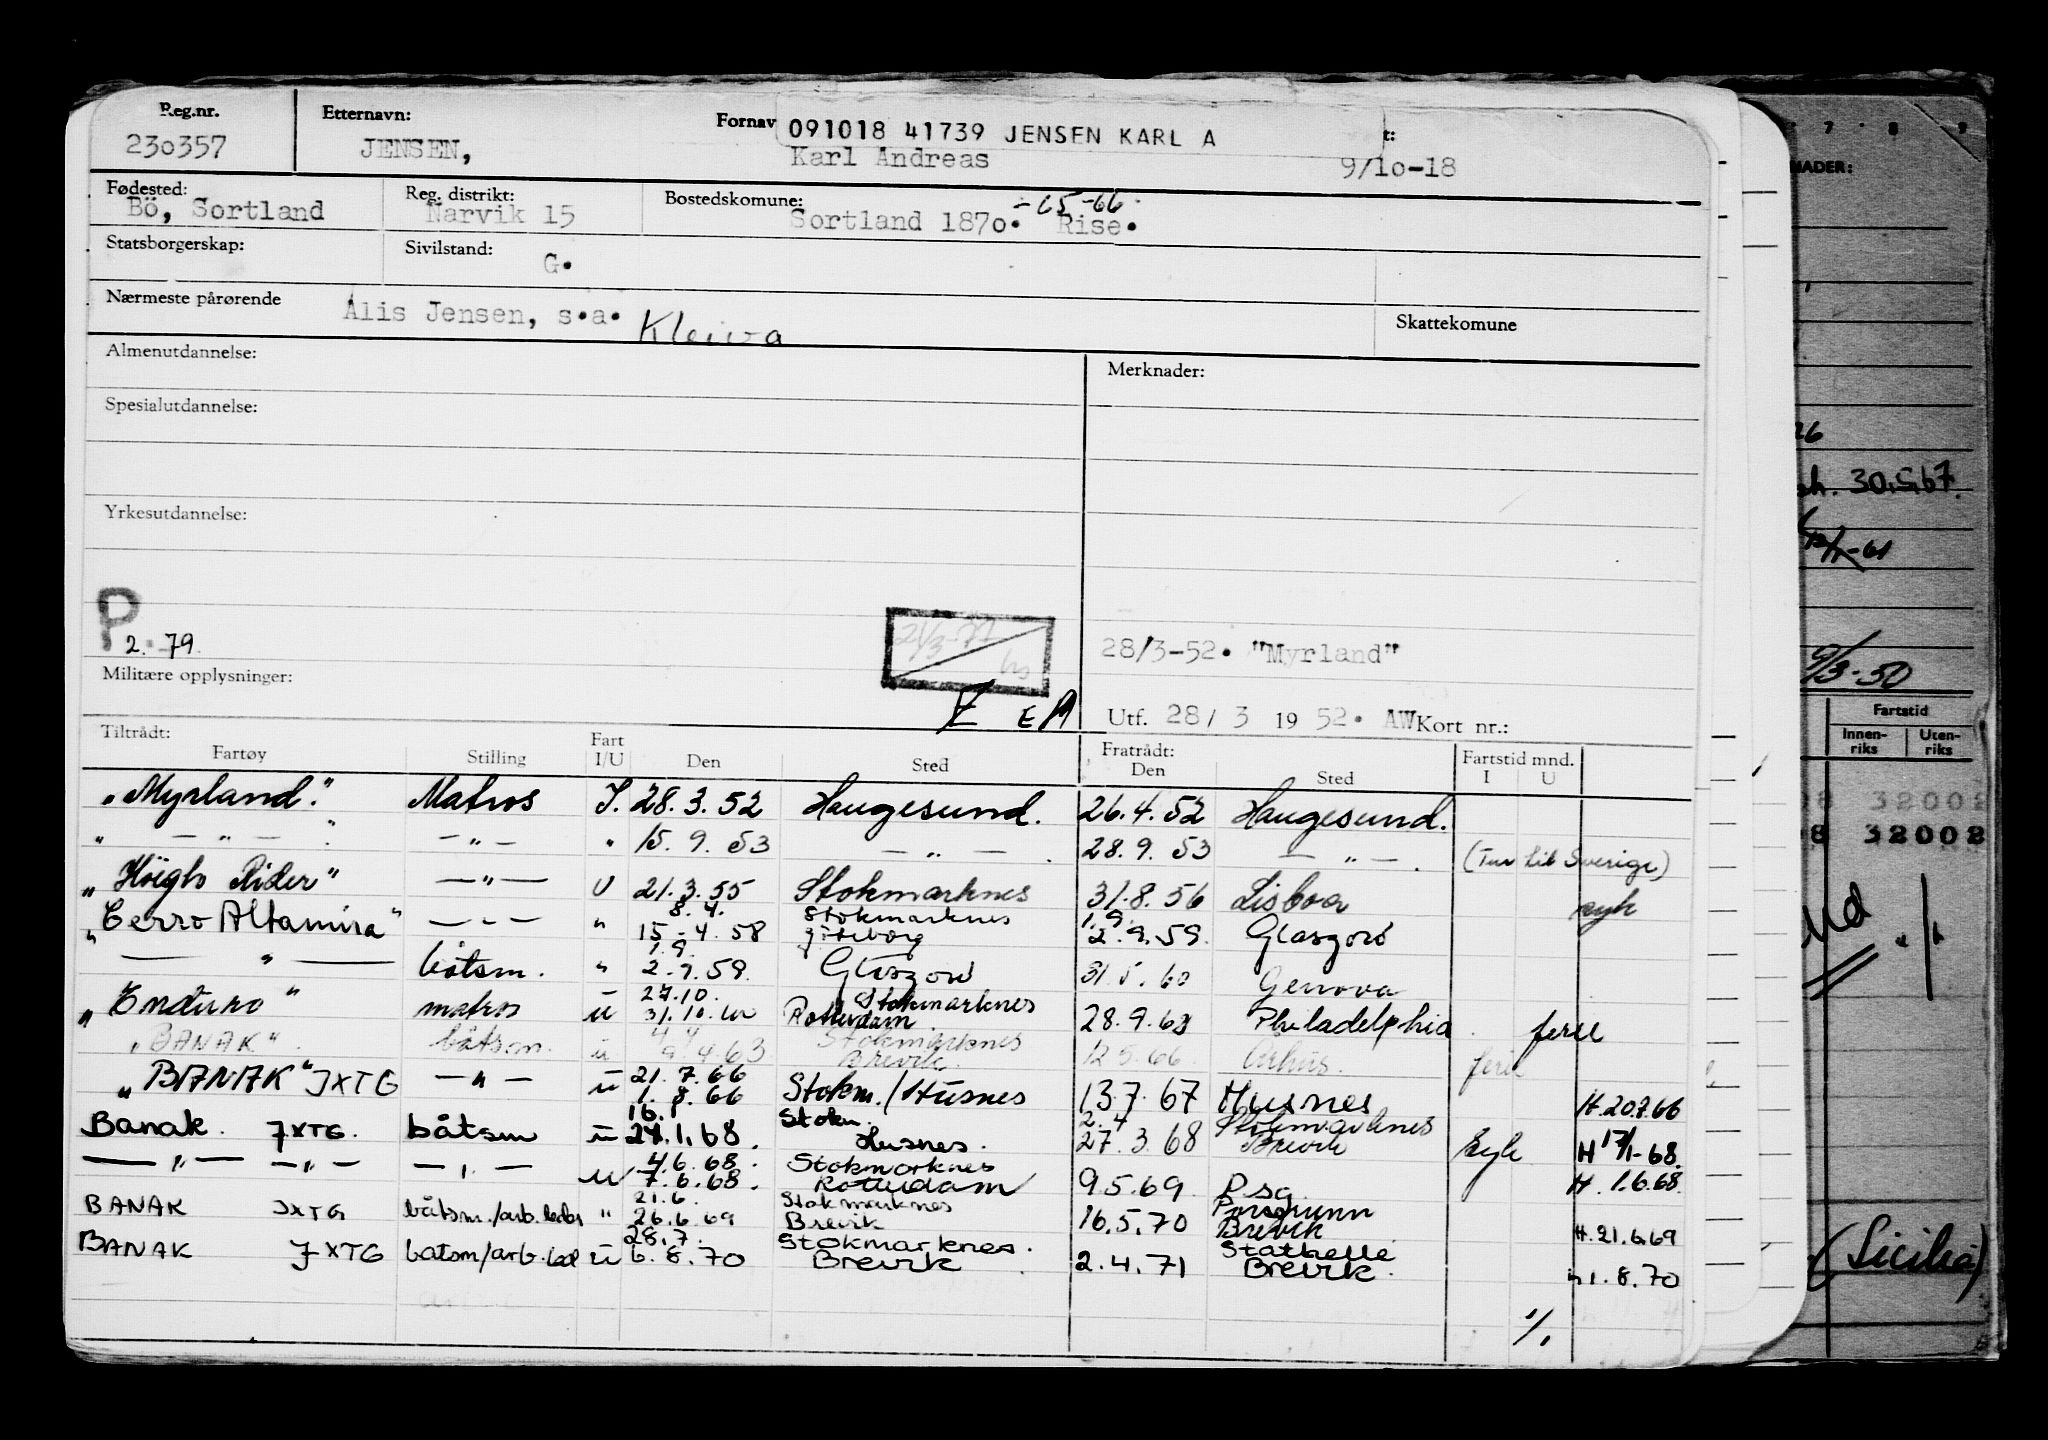 Reg.nr. Etternavn: Fornav 091018 41739 JENSEN KARL A t:
230357 JENSEN, Karl Andreas 9/10-18
Fødested: Reg. distrikt: Bostedskommune: -65-66
Bö, Sortland Narvik 15 Sortland 1870. Rise.
Statsborgerskap: Sivilstand: G.
Nærmeste pårørende Alis Jensen, s.a. Kleiva Skattekomune
Almenutdannelse: Merknader:
Spesialutdannelse:
Yrkesutdannelse:
P
2. 79. 21/3-77 28/3-52. "Myrland"
Militære opplysninger:
Z E A Utf. 28/ 3 19 52. AW Kort nr.:
Tiltrådt: Fart Fratrådt: Fartstid mnd.
Fartøy Stilling I/U Den Sted Den Sted I U
"Myrland." Matros I. 28.3.52 Haugesund. 26.4.52 Haugesund.
" — " — " — " — " 15.9.53 — " — . 28.9.53 — " — . (Tur til Sverige)
"Höigh Rider" — " — U 21.3.55 Stokmarknes 31.8.56 Lisboa syk
8.4. Stokmarknes 1.9.
"Cerro Altamira" — " — " 15.4.58 Göteborg 2.9.59. Glasgow
1.9.
— " — båtsm. " 2.9.59. Glasgow 31.5.60 Genova
27.10. Stokmarknes
"Enduro" matros u 31.10.60 Rotterdam 28.9.62 Philadelphia ferie
4.4 Stokmarknes
"BANAK" båtsm. u 9.4.63 Brevik. 12.5.66 Århus. ferie
21.7.66
"BANAK" JXTG — " — u 1.8.66 Stokm./Husnes 13.7.67 Husnes H.20.7.66
16.1 Stokm. 2.4 Stokmarknes
Banak. JXTG. båtsm u 24.1.68. Husnes. 27.3.68 Brevik Syk H 17/1-68.
4.6.68. Stokmarknes
— " — — " — — " — u 7.6.68. Rotterdam 9.5.69. P.sg. H. 1.6.68.
21.6. Stokmarknes Porsgrunn
BANAK JXTG båtsm./arb.leder " 26.6.69 Brevik 16.5.70 Brevik H. 21.6.69
28.7. Stokmarknes. Stathelle
BANAK JXTG båtsm/arb.led u 6.8.70 Brevik 2.4.71 Brevik. H 1.8.70
%.
7 8 9
MADER:
26
30.5.67.
-61
9/3-50
Fartstid
Innen-
riks
Uten-
riks
08 32002
08 32002
(Sicilia)